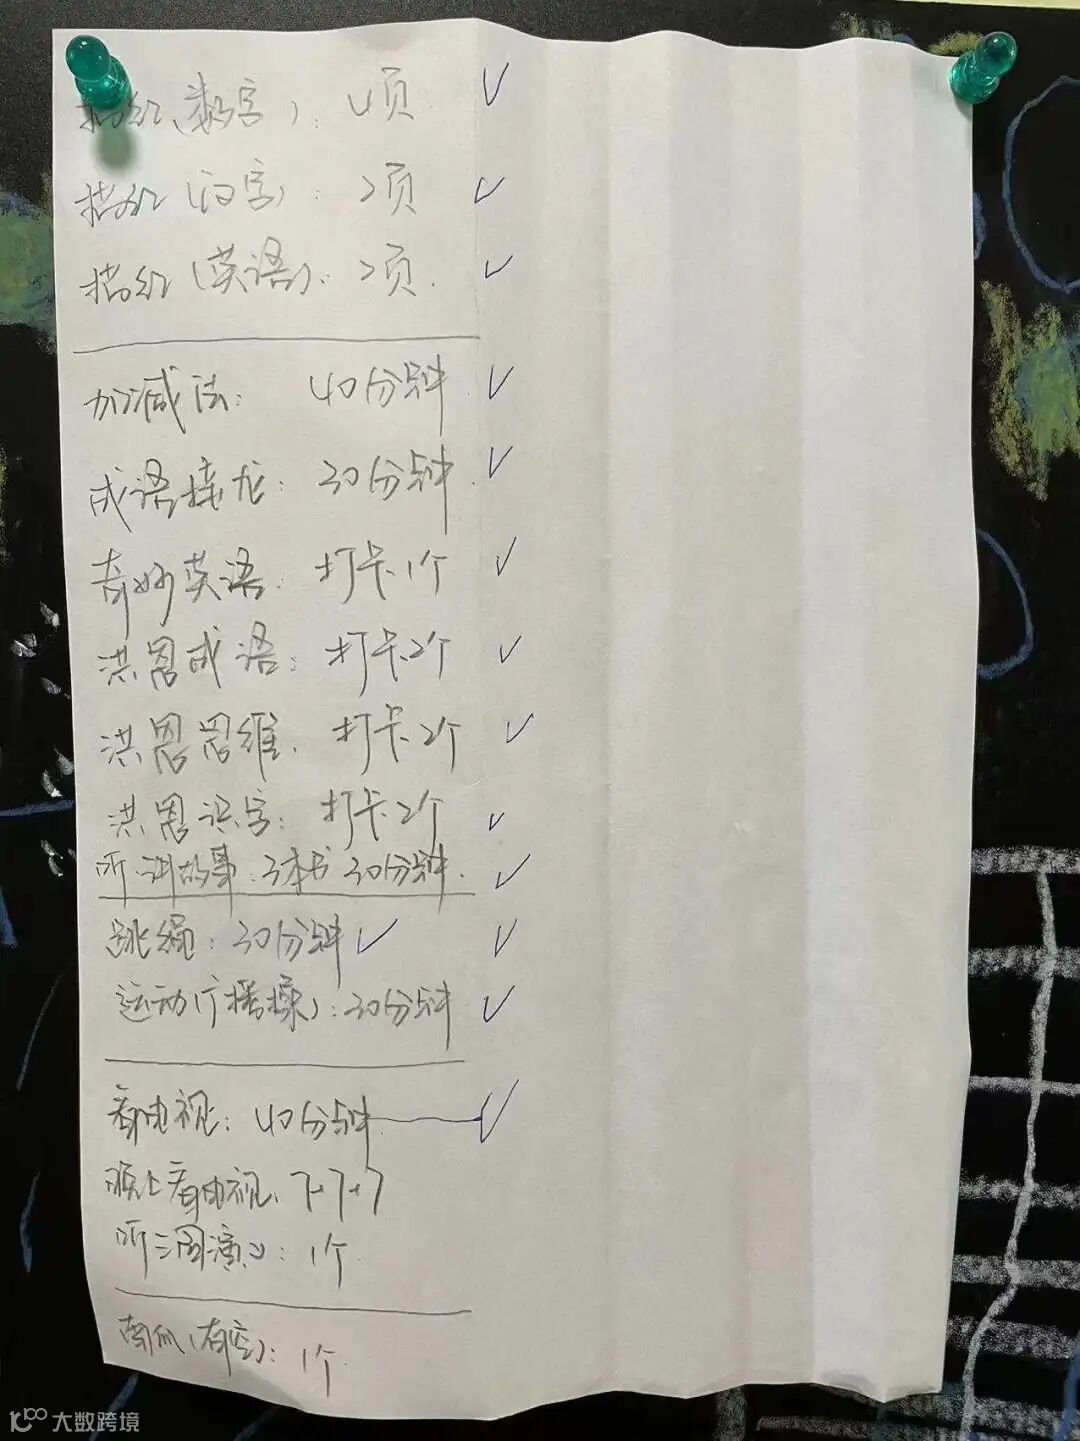 描红(数字):4页 ✓
描红(汉字):2页 ✓
描红(英语):2页. ✓
加减法:40分钟 ✓
成语接龙:30分钟. ✓
奇妙英语:打卡1个 ✓
洪恩成语:打卡2个 ✓
洪恩思维:打卡2个 ✓
洪恩识字:打卡2个 ✓
听.讲故事:3本书 30分钟. ✓
跳绳:30分钟 ✓ ✓
运动(广播操):30分钟 ✓
看电视:40分钟 ✓
晚上看电视:7+7+7
听三国演义:1个
南瓜(有空):1个.
大数跨境